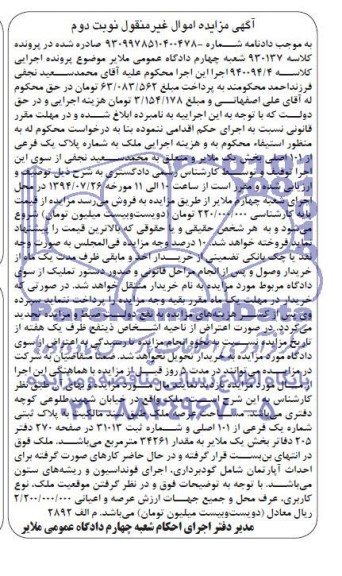 آگهی مزایده اموال غیرمنقول نوبت دوم
به موجب دادنامه شماره ۹۳۰۹۹۷۸۵۱۰۴۰۰۴۷۸- صادره شده در پرونده
کلاسه ۹۳۰۱۳۷ شعبه چهارم دادگاه عمومی ملایر موضوع پرونده اجرایی
کلاسه ۹۴۰۰۹۴/۴ اجرا این اجرا محکوم علیه آقای محمدسعید نجفی
فرزنداحمد محکومند به پرداخت مبلغ ۶۳/۰۸۳/۵۶۲ تومان در حق محکوم
له آقای علی اصفهانی و مبلغ ۳/۱۵۴/۱۷۸ تومان هزینه اجرایی و در حق
دولت که با توجه به این اجراییه به نامبرده ابلاغ شده و در مهلت مقرر
قانونی نسبت به اجرای حکم اقدامی ننموده بنا به درخواست محکوم له به
منظور استیفاء محکوم به و هزینه اجرایی ملک به شماره پلاک یک فرعی
از ۱۰۱ اصلی بخش یک ملایر و متعلق به محمدسعید نجفی از سوی این
اجرا توقیف و توسط کارشناس رسمی دادگستری به شرح ذیل توصیف و
ارزیابی شده و مقرر است از ساعت ۱۰ الی ۱۱ مورخه ۱۳۹۴/۰۷/۲۶ در محل
اجرای شعبه چهارم ملایر از طریق مزایده به فروش می‌رسد مزایده از قیمت
پایه کارشناسی ۲۲۰/۰۰۰/۰۰۰ تومان (دویست‌وبیست میلیون تومان) شروع
می‌شود و به هر شخص حقیقی و یا حقوقی که بالاترین قیمت را پیشنهاد
نماید فروخته خواهد شد. ۱۰ درصد وجه مزایده فی‌المجلس به صورت وجه
نقد یا چک بانکی تضمینی از خریدار اخذ و مابقی ظرف مدت یک ماه از
خریدار وصول و پس از انجام مراحل قانونی و صدور دستور تملیک از سوی
دادگاه مربوط مورد مزایده به نام خریدار منتقل خواهد شد. در صورتی که
خریدار در مهلت یک ماه مقرر بقیه وجه مزایده را پرداخت ننماید سپرده
وی پس از کسر هزینه‌های مزایده به نفع دولت ضبط و مزایده تجدید
می‌گردد. در صورت اعتراض از ناحیه اشخاص ذینفع ظرف یک هفته از
تاریخ مزایده نسبت به نحوه انجام مزایده تا رسیدگی به اعتراض از سوی
دادگاه مورد مزایده به خریدار تحویل نخواهد شد. ضمناً متقاضیان به شرکت
در مزایده می‌توانند در مدت ۵ روز قبل از مزایده با هماهنگی این اجرا
از ملک مورد مزایده بازدید نمایند.
کارشناسی به این شرح است: ملک واقع در خیابان شهید طلوعی کوچه
شماره یک فرعی از ۱۰۱ اصلی و شماره ثبت ۳۱۰۱۳ در صفحه ۲۷۰ دفتر
۲۰۵ دفاتر بخش یک ملایر به مقدار ۳۴۲۶۱ مترمربع می‌باشد. ملک فوق
در انتهای بن‌بست قرار گرفته و در حال حاضر کارهای صورت گرفته برای
احداث آپارتمان شامل گودبرداری، اجرای فونداسیون و ریشه‌های ستون
می‌باشد. با توجه به توضیحات فوق و در نظر گرفتن موقعیت ملک، نوع
کاربری، عرف محل و جمیع جهات ارزش عرصه و اعیانی ۲/۲۰۰/۰۰۰/۰۰۰
ریال معادل (دویست‌وبیست میلیون تومان) می‌باشد. م الف ۲۸۹۲
مدیر دفتر اجرای احکام شعبه چهارم دادگاه عمومی ملایر